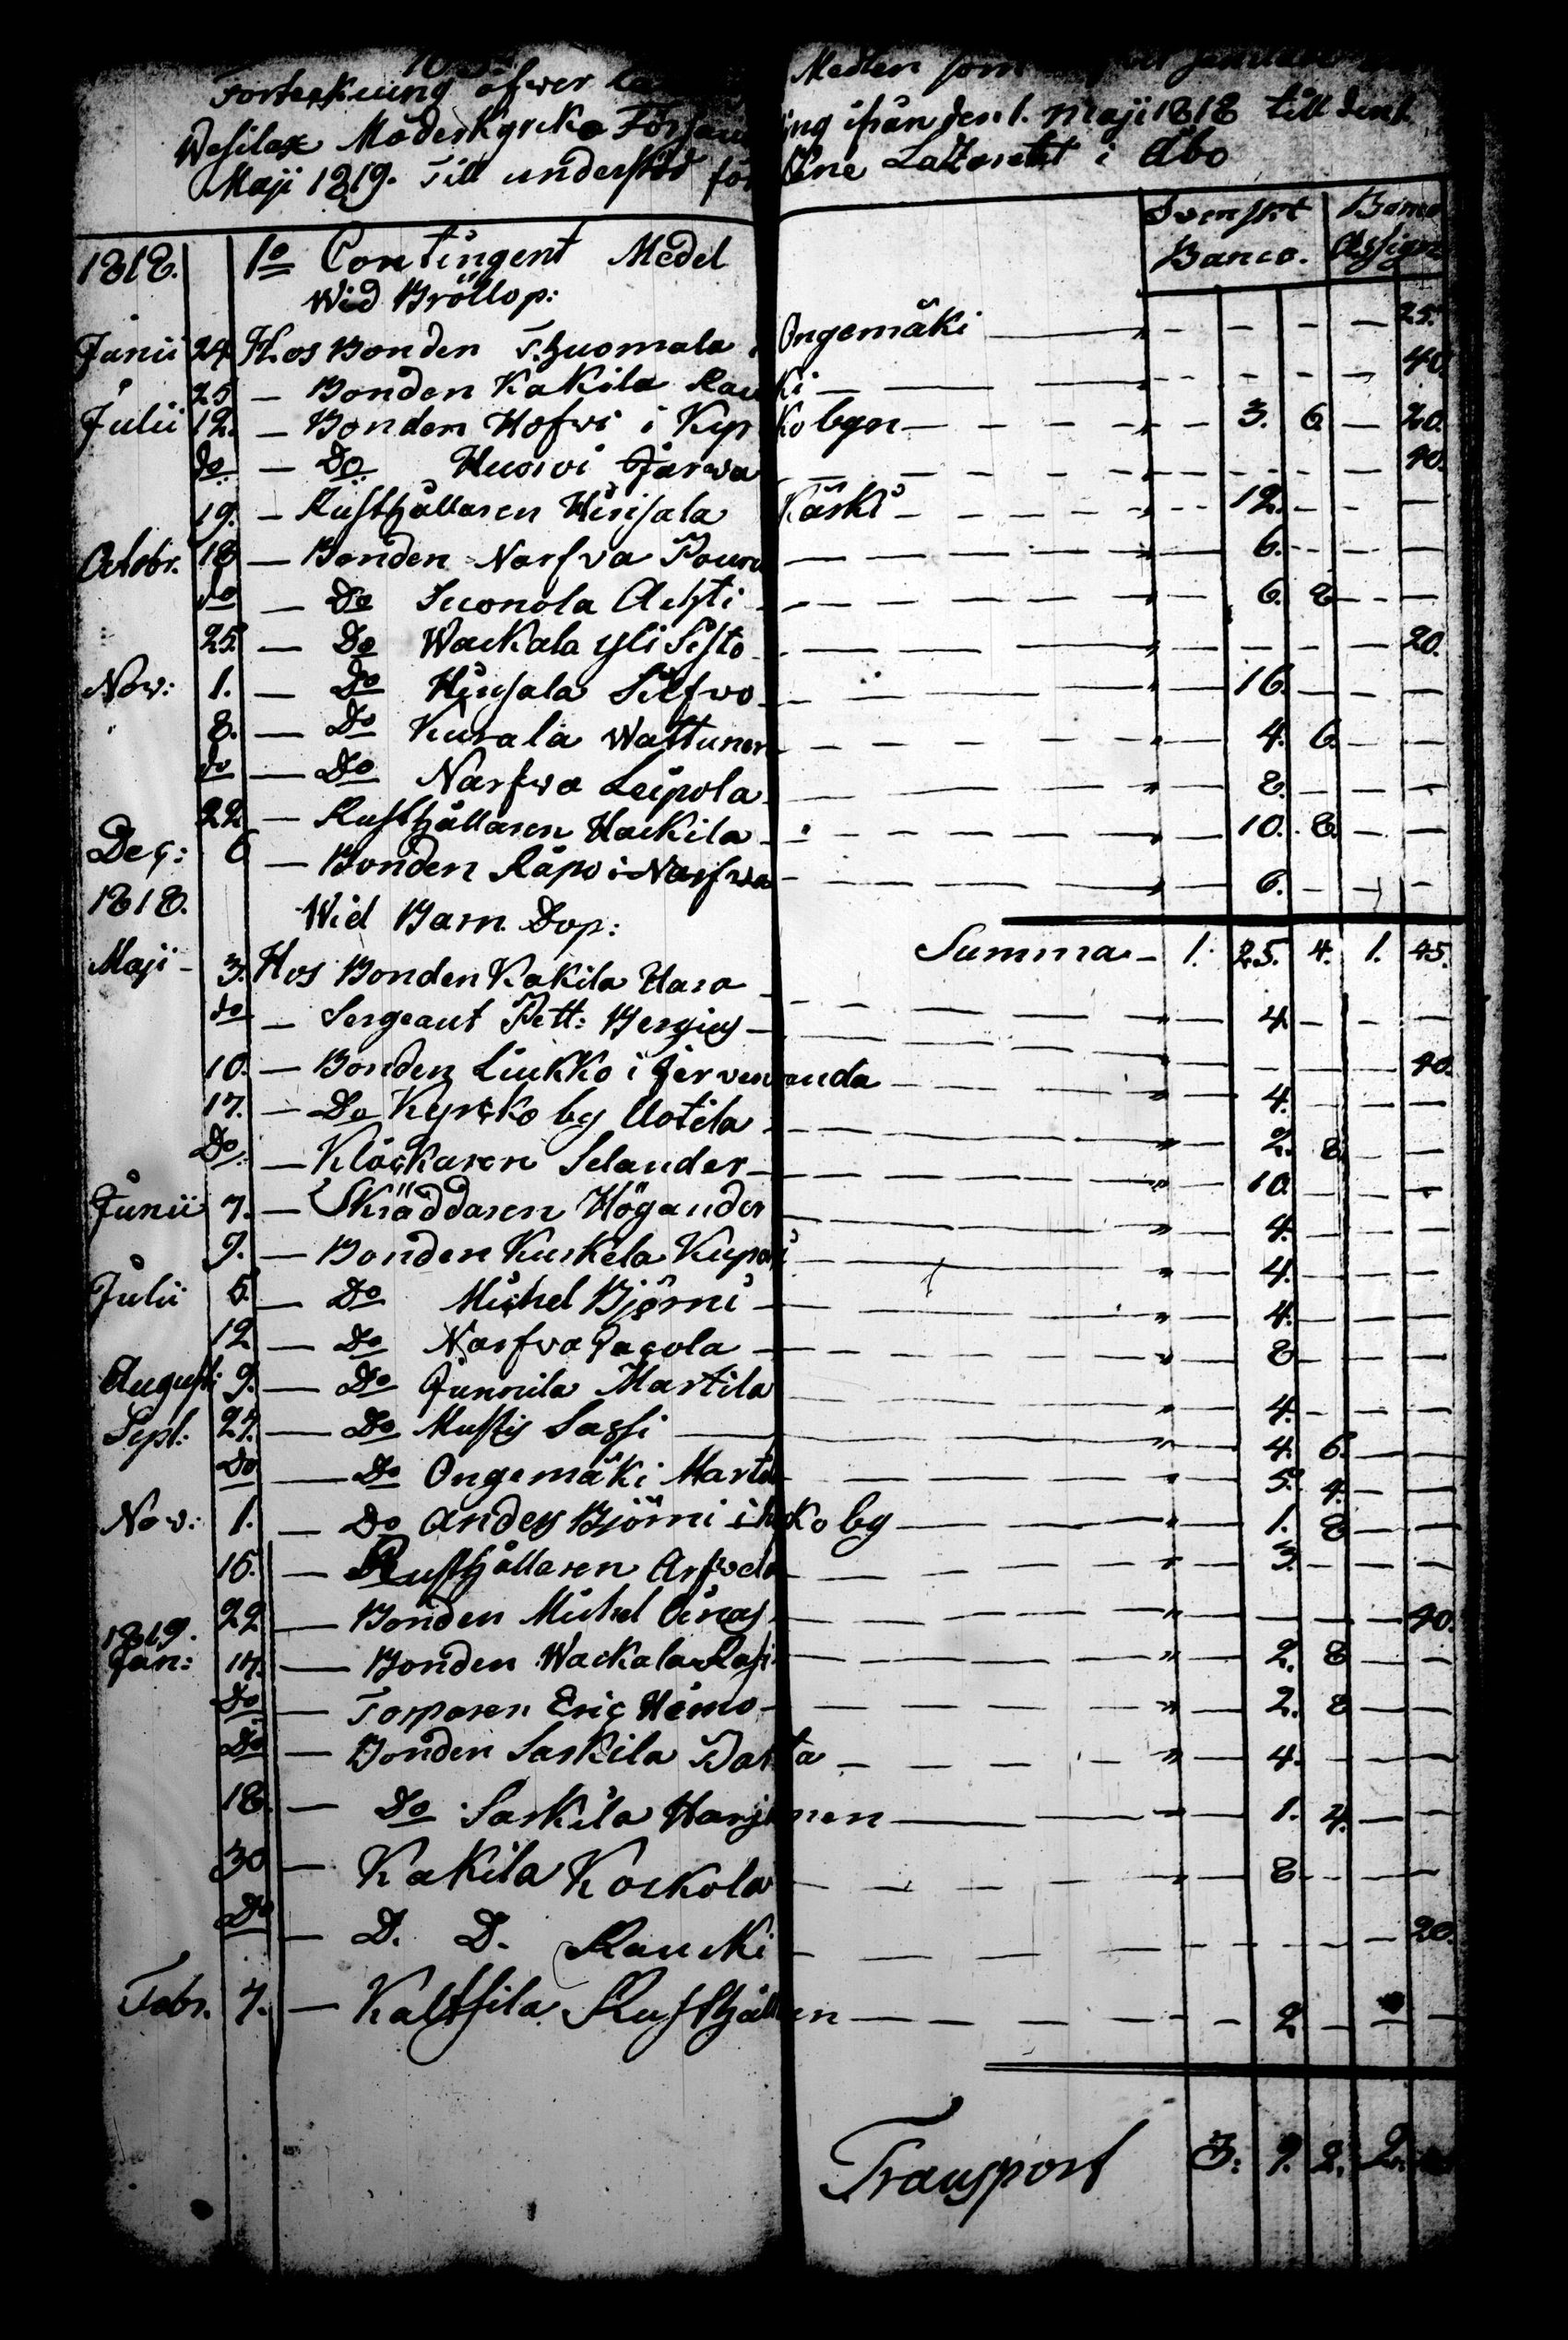 Förteckning öfwer Medlen som
Wesilax Moderkyrko Försam ing ifrån den 1. Maji 1818 till den 1.
Maji 1819. Till understöd för Lazarettet i Åbo
Svenskt Banco. Banco Assign
1818. 1o Contingent Medel
Wid Bröllop:
Junii 24 Hos Bonden Thuomala i Ongemäki — 25.
25 — Bonden Kakila Rau ki — 40.
Julii 12. — Bonden Hofwi i Kyr kobyn — 3. 6 — 20.
do — Do Huowi Jarwa — 40.
19. — Rusthållaren Hinsala Käski — 12. —
Octobr. 18 — Bonden Narfva Pouru — 6. —
do — Do Suonola Achti — 6. 8 —
25. — Do Wackala yli Sisto — 20.
Nov: 1. — Do Hinsala Silfwo — 16. —
8. — Do Kurala Wattunen — 4. 6. —
do — Do Narfva Leipola — 8. —
22 — Rusthållaren Hackila — 10. 8. —
Dec: 6 — Bonden Räpo i Narfwa — 6. —
Summa — 1. 25. 4. 1. 45.
1818. Wid Barn Dop:
Maji — 3. Hos Bonden Kakila Hara — 4 —
do — Sergeant Pett: Bergius — 40.
10. — Bonden Liukko i Jervenranda — 4. —
17. — Do Kyrcko by Uotila — 2. 8. —
Do. — Klockaren Selander — 10 —
Junii 7. — Skräddaren Högander — 4. —
9. — Bonden Kuskela Kupari — 4. —
Julii 5. — Do Michel Björni — 4. —
12 — Do Narfva Jacola — 8 —
Augusti 9. — Do Junnila Martila — 4. —
Sept: 27. — Do Mustis Sassi — 4. 6. —
Do — Do Ongemäki Martila — 5. 4. —
Nov: 1. — Do Anders Björni i kyrko by — 1. 8 —
15. — Rusthållaren Arfvela — 3. —
22 — Bonden Michel — 40.
1819.
Jan: 17. — Bonden Wackala Rasi — 2. 8 —
Do — Torparen Eric Heimo — 2. 8 —
Do — Bonden Saskila Pa ta — 4. —
18. — Do Saskila Harjunen — 1. 4. —
30 — Kakila Kockola — 8 —
Do — D. D. Raucki — 20.
Febr. 7. — Kaltsila Rusthållaren — 2 —
Transport 3. 9. 2. 2.